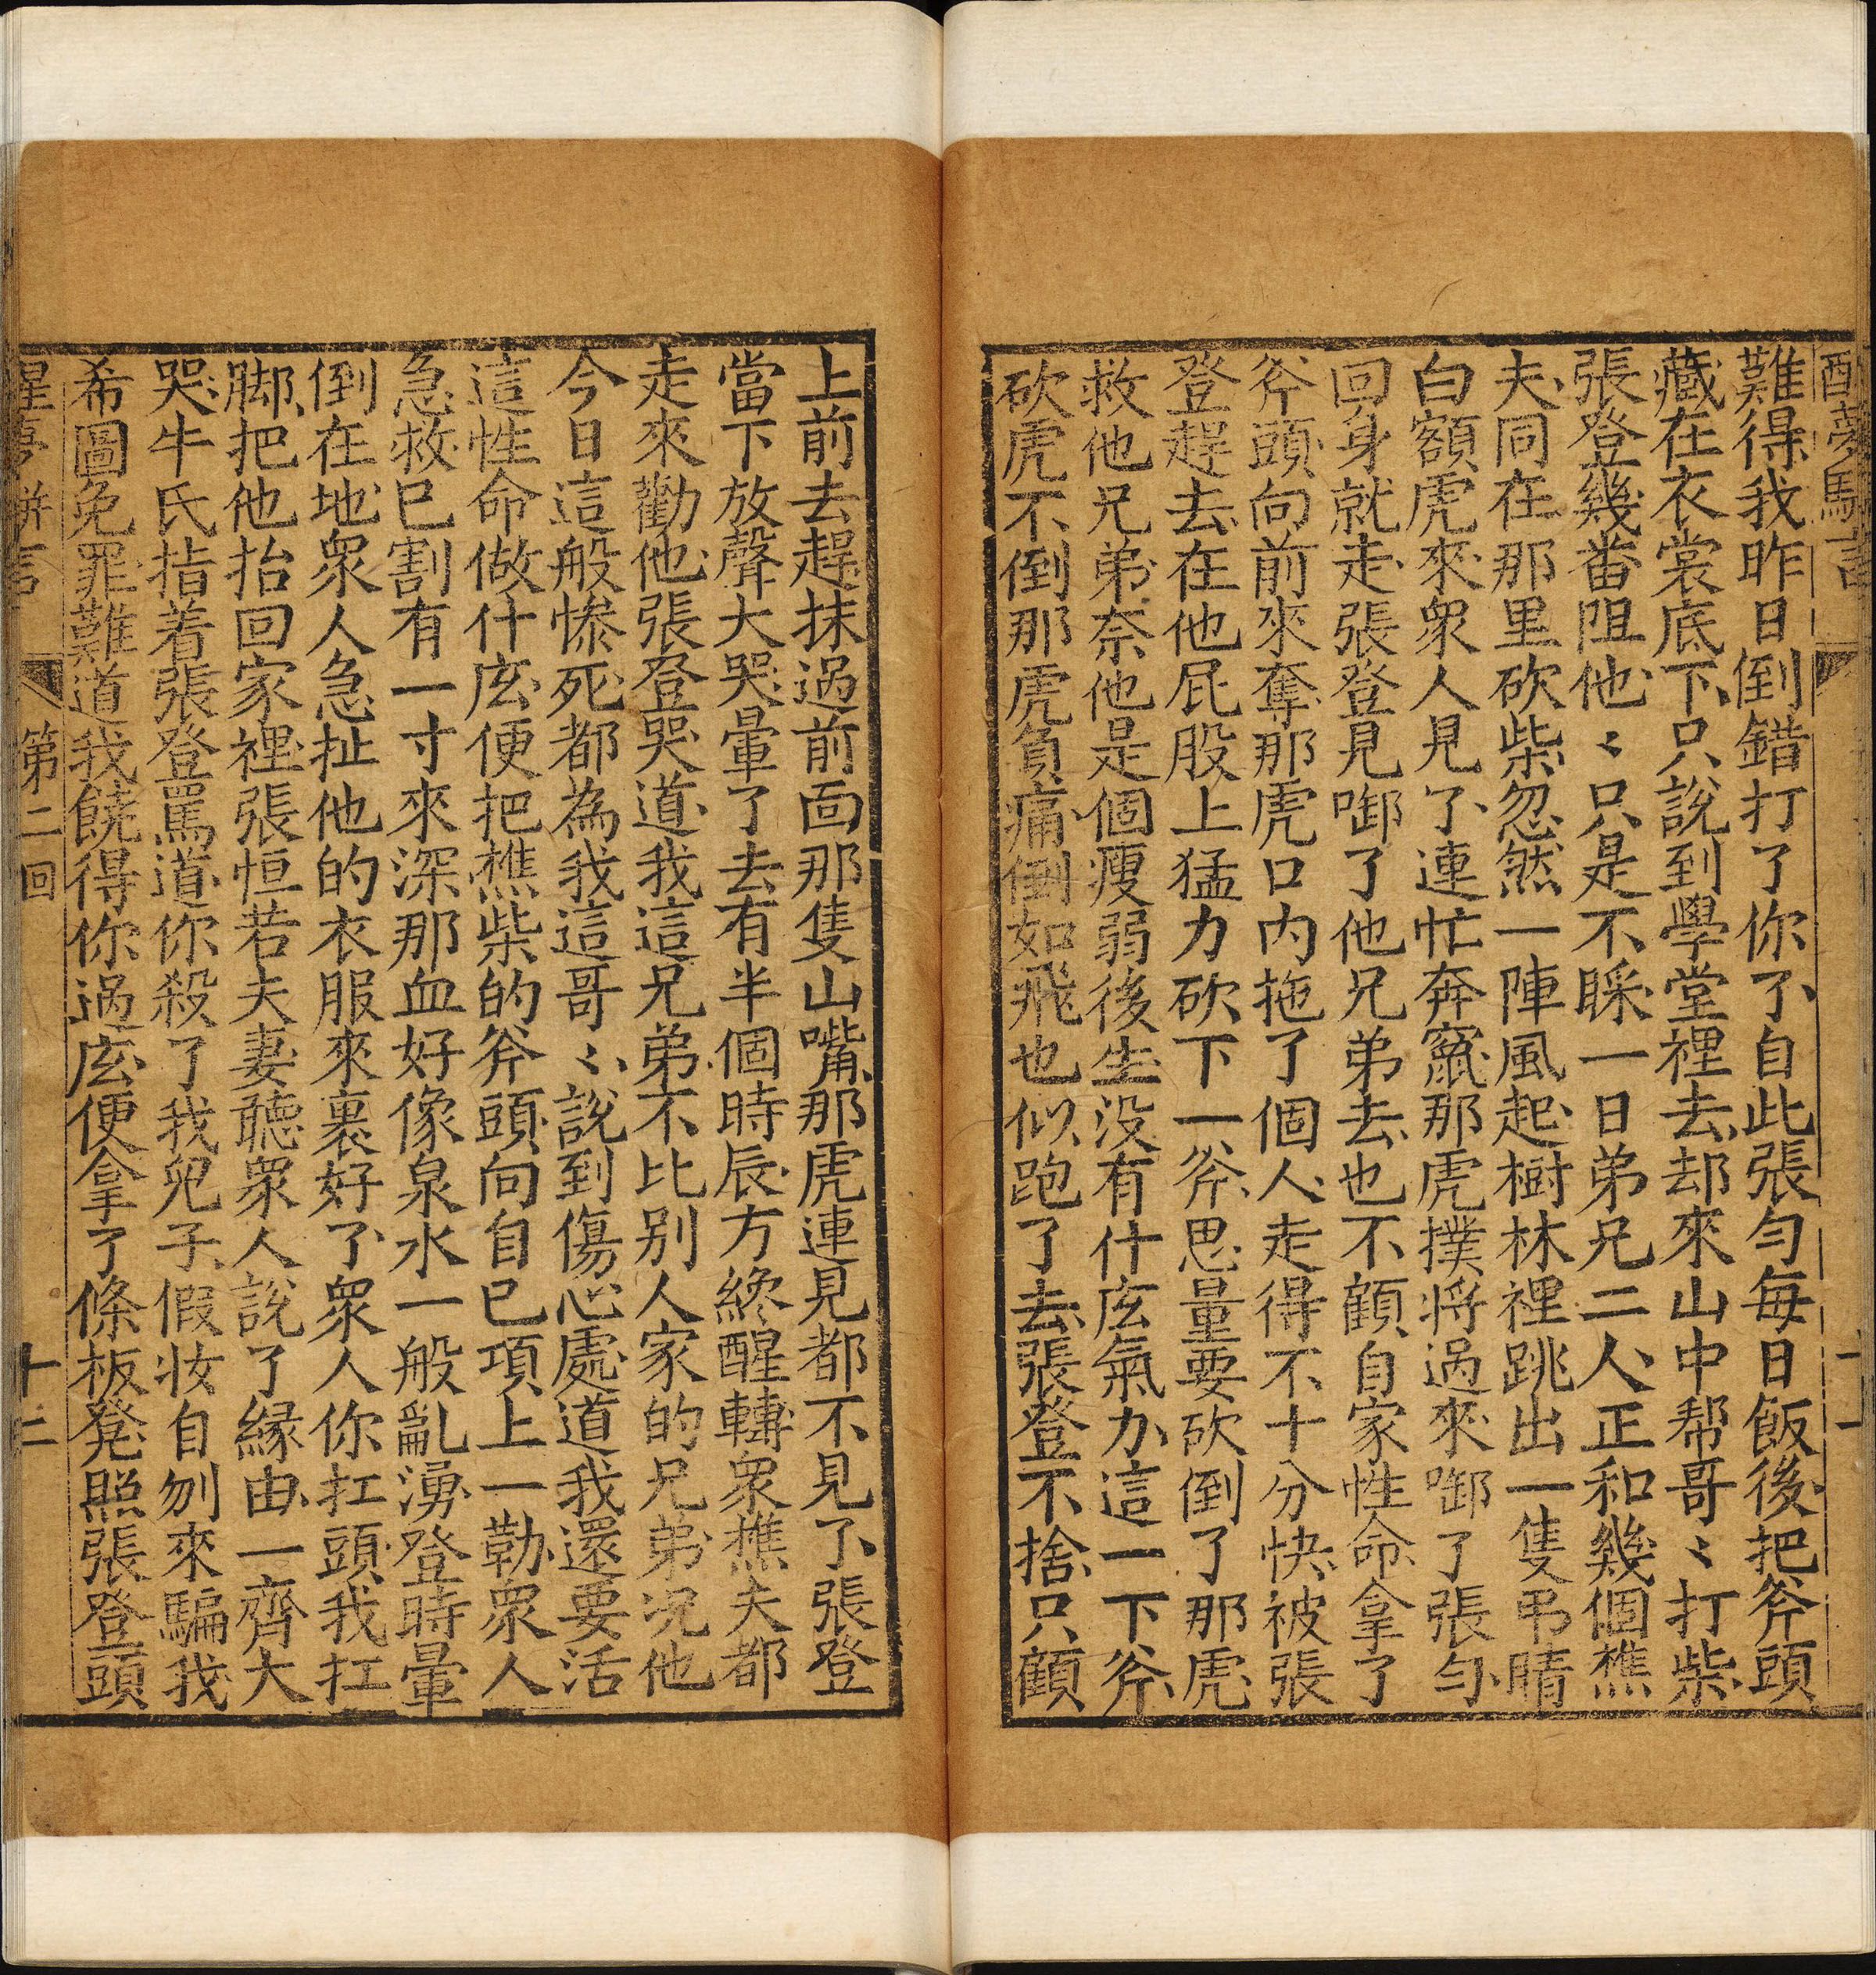 醒夢駢言
十一
難得我昨日倒錯打了你了、自此張勻每日飯後、把斧頭
藏在衣裳底下、只說到學堂裡去、却來山中帮哥〻打柴、
張登幾畨阻他、〻只是不睬、一日弟兄二人、正和幾個樵
夫、同在那里砍柴、忽然一陣風起、樹林裡跳出一隻弔睛
白額虎來、衆人見了、連忙奔竄、那虎撲將過來、啣了張勻、
回身就走、張登見啣了他兄弟去、也不顧自家性命、拿了
斧頭、向前來奪、那虎口內拖了個人、走得不十分快、被張
登趕去、在他屁股上猛力砍下一斧、思量要砍倒了那虎、
救他兄弟、奈他是個瘦弱後生、没有什庅氣力、這一下斧、
砍虎不倒、那虎負痛、倒如飛也似跑了去、張登不捨、只顧
上前去趕、抹過前面那隻山嘴、那虎連見都不見了、張登
當下放聲大哭、暈了去、有半個時辰、方纔醒轉、衆樵夫都
走來勸他、張登哭道、我這兄弟、不比别人家的兄弟、况他
今日這般慘死、都為我這哥〻、說到傷心處、道我還要活
這性命做什庅、便把樵柴的斧頭、向自已項上一勒、衆人
急救、已割有一寸來深、那血好像泉水一般亂湧、登時暈
倒在地、衆人急扯他的衣服來裹好了、衆人你扛頭、我扛
脚、把他抬回家裡、張恒若夫妻聽衆人說了緣由、一齊大
哭、牛氏指着張登罵道、你殺了我兒子、假妝自刎來騙我、
希圖免罪、難道我饒得你過庅、便拿了條板凳、照張登頭
醒夢駢言
第二回
十二